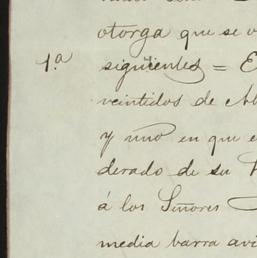 otorga que se
1.ª siguientes = E
veintidos de
y uno en que e
derado de su
á los Señores
media barra avi